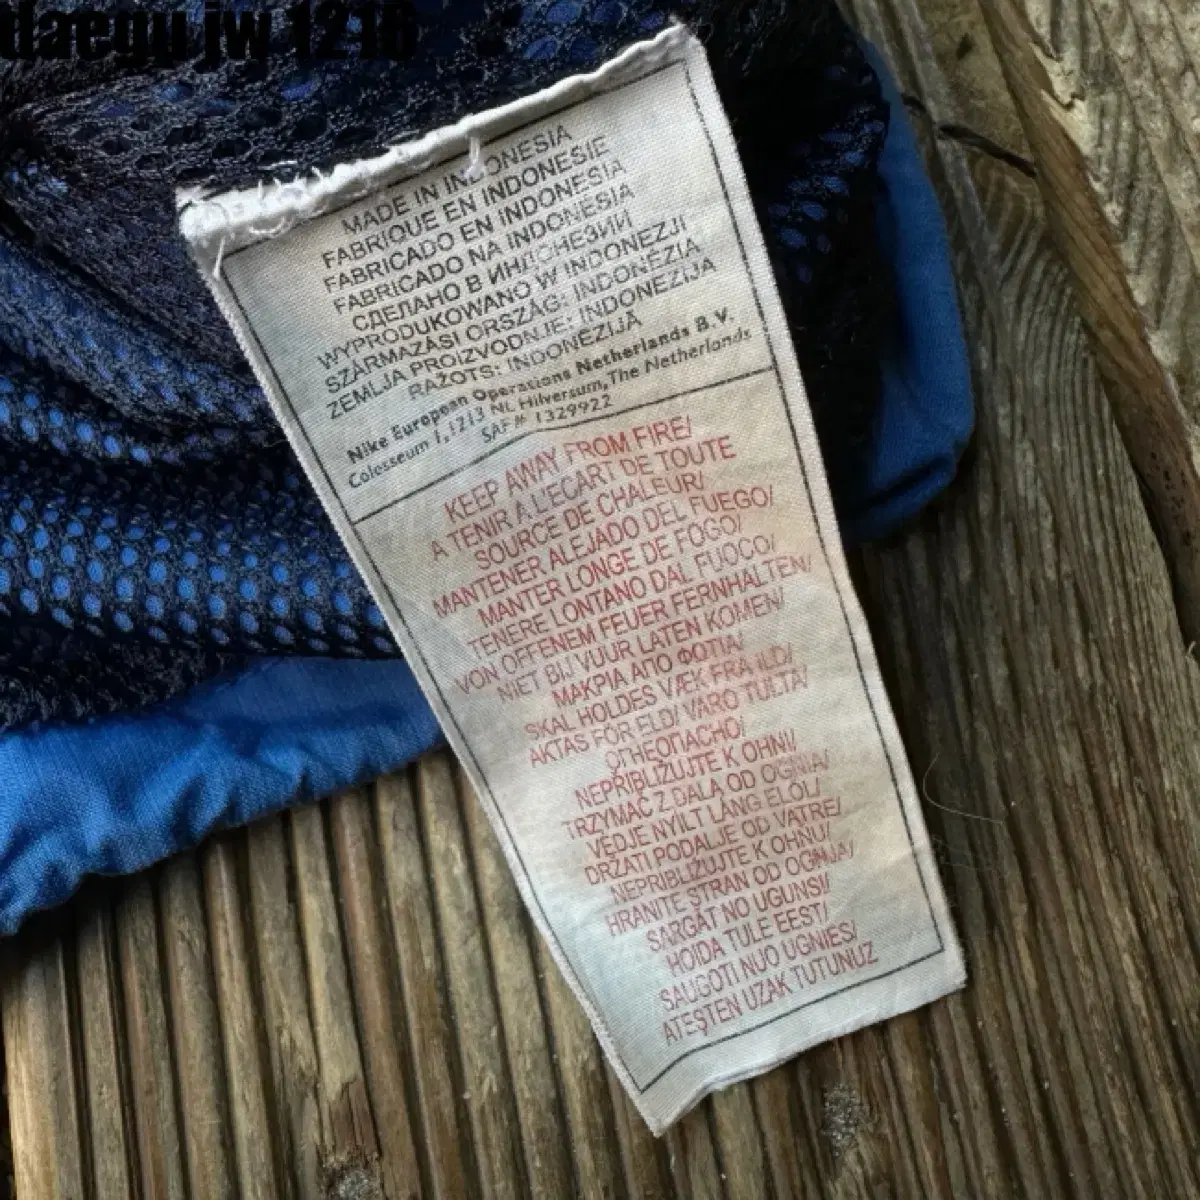 daegu jw 1216
MADE IN INDONESIA
FABRIQUE EN INDONESIE
FABRICADO EN INDONESIA
FABRICADO NA INDONESIA
СДЕЛАНО В ИНДОНЕЗИИ
WYPRODUKOWANO W INDONEZJI
SZÁRMAZÁSI ORSZÁG: INDONÉZIA
ZEMLJA PROIZVODNJE: INDONEZIJA
RAŽOTS: INDONĒZIJĀ
Nike European Operations Netherlands B.V.
Colosseum 1,1213 NL Hilversum,The Netherlands
SAF# 1329922
KEEP AWAY FROM FIRE/
A TENIR A L'ECART DE TOUTE
SOURCE DE CHALEUR/
MANTENER ALEJADO DEL FUEGO/
MANTER LONGE DE FOGO/
TENERE LONTANO DAL FUOCO/
VON OFFENEM FEUER FERNHALTEN/
NIET BIJ VUUR LATEN KOMEN/
ΜΑΚΡΙΑ ΑΠΟ ΦΩΤΙΑ/
SKAL HOLDES VÆK FRA ILD/
AKTAS FÖR ELD/ VARO TULTA/
ОГНЕОПАСНО/
NEPRIBLIŽUJTE K OHNI/
TRZYMAĆ Z DALA OD OGNIA/
VÉDJE NYÍLT LÁNG ELÖL/
DRŽATI PODALJE OD VATRE/
NEPRIBLIŽUJTE K OHŇU/
HRANITE STRAN OD OGNJA/
SARGĀT NO UGUNS!/
HOIDA TULE EEST/
SAUGOTI NUO UGNIES/
ATEŞTEN UZAK TUTUNUZ